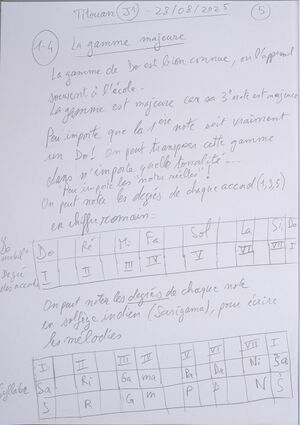 Titouan J1 - 28/08/2025 5
1-4 La gamme majeure
La gamme de Do est bien connue, on l'apprend
souvent à l'école.
La gamme est majeure car sa 3e note est majeure
Peu importe que la 1ère note soit vraiment
un Do! On peut transposer cette gamme
dans n'importe quelle tonalité...
Peu importe les "notes réelles"!
On peut noter les degrés de chaque accord (1,3,5)
en chiffre romain:
Do Ré Mi Fa Sol La Si Do
Degré des accords I II III IV V VI VII I
On peut noter les degrés de chaque note
en solfège indien (Sarigama), pour écrire
les mélodies
I II III IV V VI VII I
Syllabe Sa Ri Ga ma Pa Da Ni Sa
S R G m P D N S